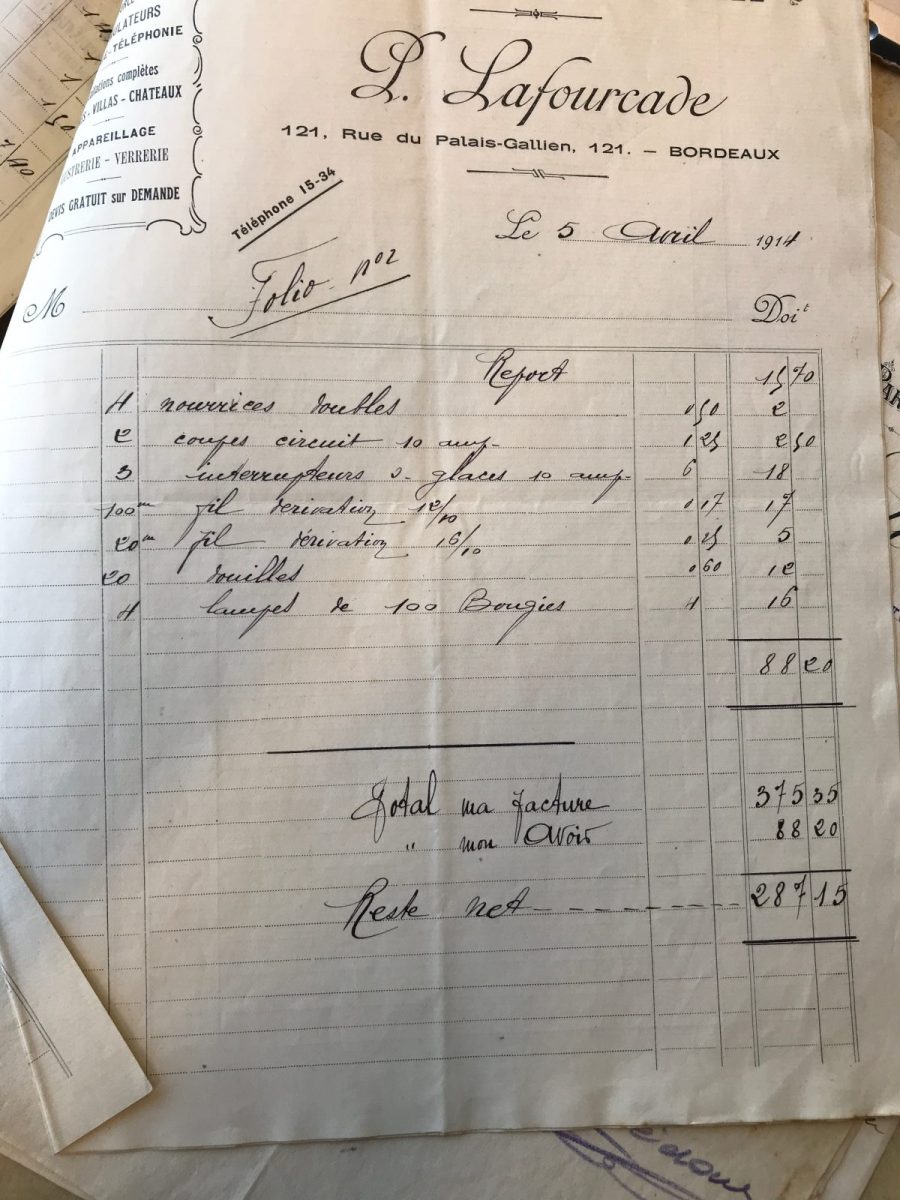 ULATEURS
TÉLÉPHONIE
complètes
VILLAS - CHATEAUX
APPAREILLAGE
VERRERIE
DEVIS GRATUIT sur DEMANDE
P. Lafourcade
121, Rue du Palais-Gallien, 121. — BORDEAUX
Téléphone 15-34
Le 5 Avril 1914
Folio n° 2
M Doit
Report 15 70
4 nourrices doubles 0 50 2
2 coupes circuit 10 amp. 1 25 2 50
3 interrupteurs s. glaces 10 amp. 6 18
100m fil derivation 12/10 0 17 17
20m fil dérivation 16/10 0 25 5
20 douilles 0 60 12
4 lampes de 100 Bougies 4 16
88 20
Total ma facture 375 35
" mon Avoir 88 20
Reste net 287 15